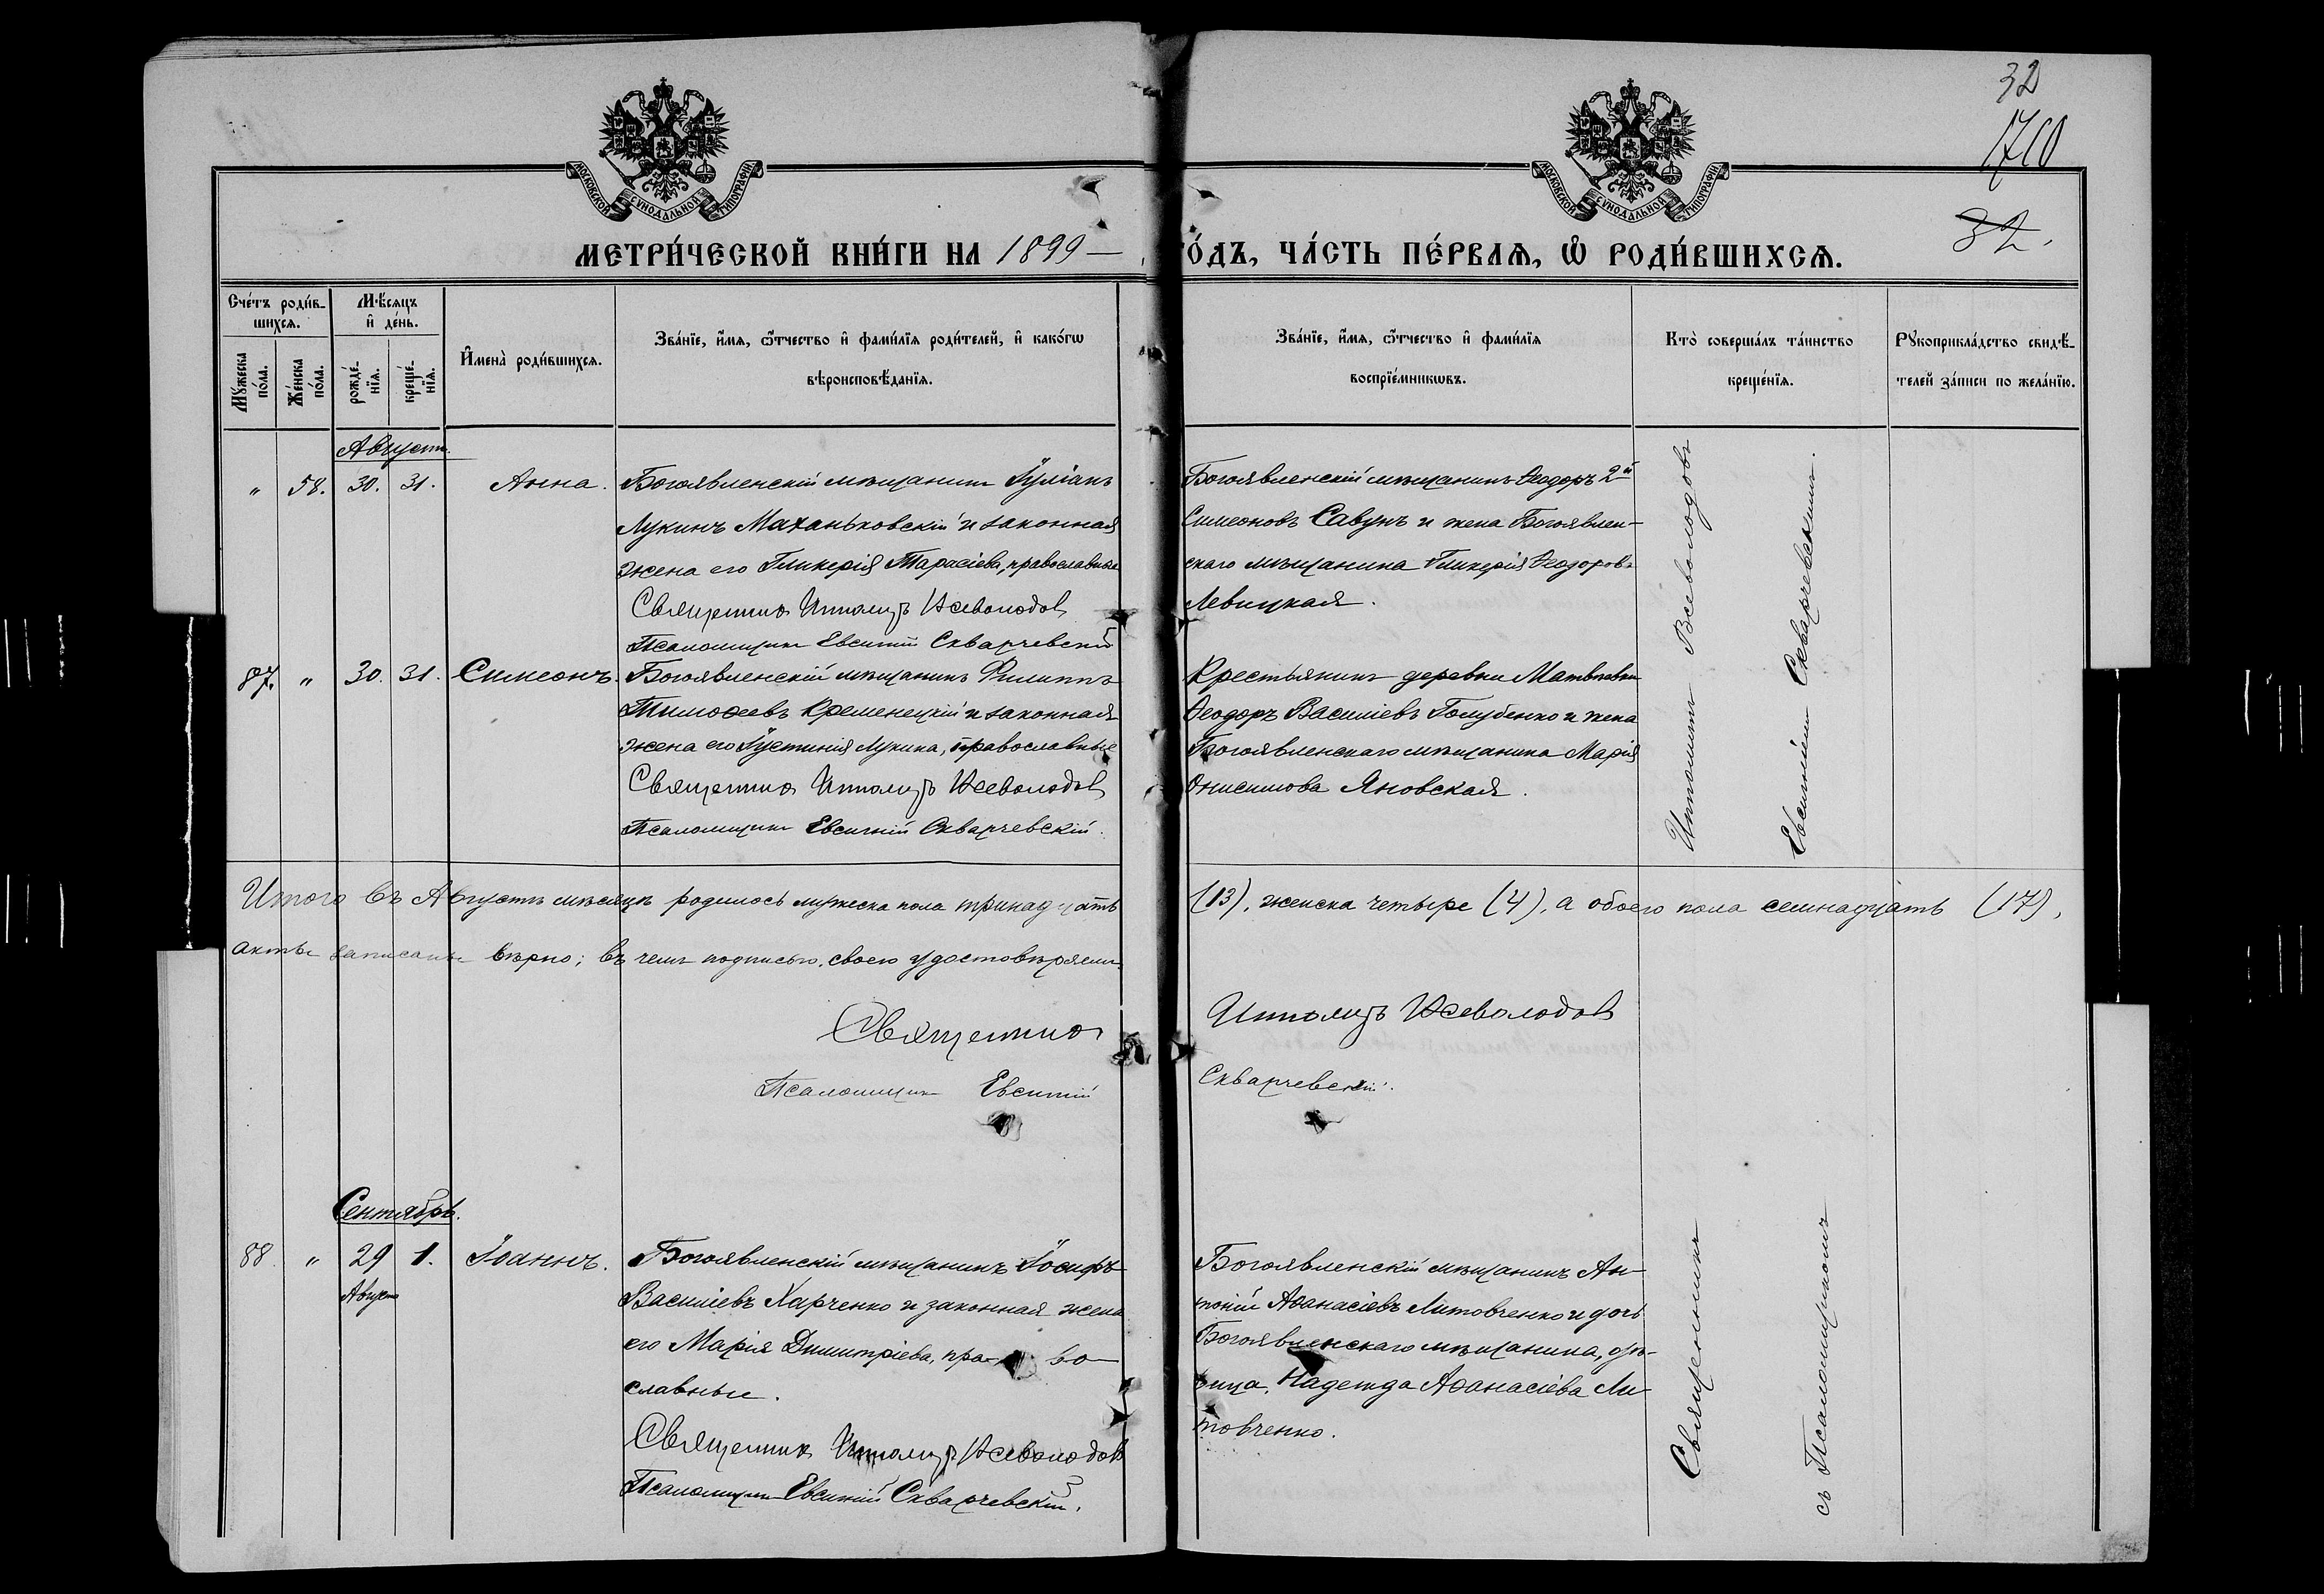 32
1710
32.
МОСКОВСКОЙ СѴНОДАЛЬНОЙ ТИПОГРАФІИ
МОСКОВСКОЙ СѴНОДАЛЬНОЙ ТИПОГРАФІИ
МЕТРИ́ЧЕСКОЙ КНИ́ГИ НА 1899 — ГО́ДЪ, ЧА́СТЬ ПЕ́РВАѦ, Ѡ РОДИ́ВШИХСѦ.
Сче́тъ роди́в-
шихсѧ.
Мѣ́сяцъ
и҆ де́нь.
Мꙋ́жеска по́ла.
Же́нска по́ла.
рожде́-нїѧ.
креще́-нїѧ.
И҆мена̀ роди́вшихсѧ.
Зва́нїе, и҆́мѧ, ѻ҆́тчество и҆ фами́лїѧ роди́телей, и҆ како́гѡ
вѣроисповѣ́данїѧ.
Зва́нїе, и҆́мѧ, ѻ҆́тчество и҆ фами́лїѧ
воспрїе́мникѡвъ.
Кто̀ соверша́лъ та́инство
креще́нїѧ.
Рꙋкоприкла́дство свидѣ́-
телей за́писи по жела́нїю.
Августъ.
" 58. 30. 31. Анна. Богоявленскій мѣщанинъ Іуліанъ
Лукинъ Маханьковскій и законная
жена его Гликерія Тарасіева, православные
Священникъ Ипполитъ Всеволодовъ
Псаломщикъ Евсигній Скварчевскій
Богоявленскій мѣщанинъ Ѳеодоръ 2й
Симеоновъ Савунъ и жена Богоявлен-
скаго мѣщанина Гликерія Ѳеодорова
Левицкая.
87. " 30. 31. Симеонъ. Богоявленскій мѣщанинъ Филиппъ
Тимоѳеевъ Кременецкій и законная
жена его Іустинія Лукина, православные
Священникъ Ипполитъ Всеволодовъ
Псаломщикъ Евсигній Скварчевскій.
Крестьянинъ деревни Матвѣевки
Ѳеодоръ Василіевъ Голубенко и жена
Богоявленскаго мѣщанина Марія
Онисимова Яновская.
Ипполитъ Всеволодовъ
Евсигніемъ Скварчевскимъ.
Итого въ Августѣ мѣсяцѣ родилось мужеска пола тринадцать (13), женска четыре (4), а обоего пола семнадцать (17),
акты записаны вѣрно; въ чемъ подписью своею удостовѣряемъ.
Священникъ Ипполитъ Всеволодовъ
Псаломщикъ Евсигній Скварчевскій.
Сентябрь.
88. " 29 1. Іоаннъ. Богоявленскій мѣщанинъ Іосифъ
Августа
Василіевъ Харченко и законная жена
его Марія Димитріева, пра-во-
славные.
Священникъ Ипполитъ Всеволодовъ
Псаломщикъ Евсигній Скварчевскій.
Богоявленскій мѣщанинъ Ан-
тоній Аѳанасіевъ Литовченко и дочь
Богоявленскаго мѣщанина, дѣ-
вица, Надежда Аѳанасіева Ли-
товченко.
Священникъ
съ Псаломщикомъ